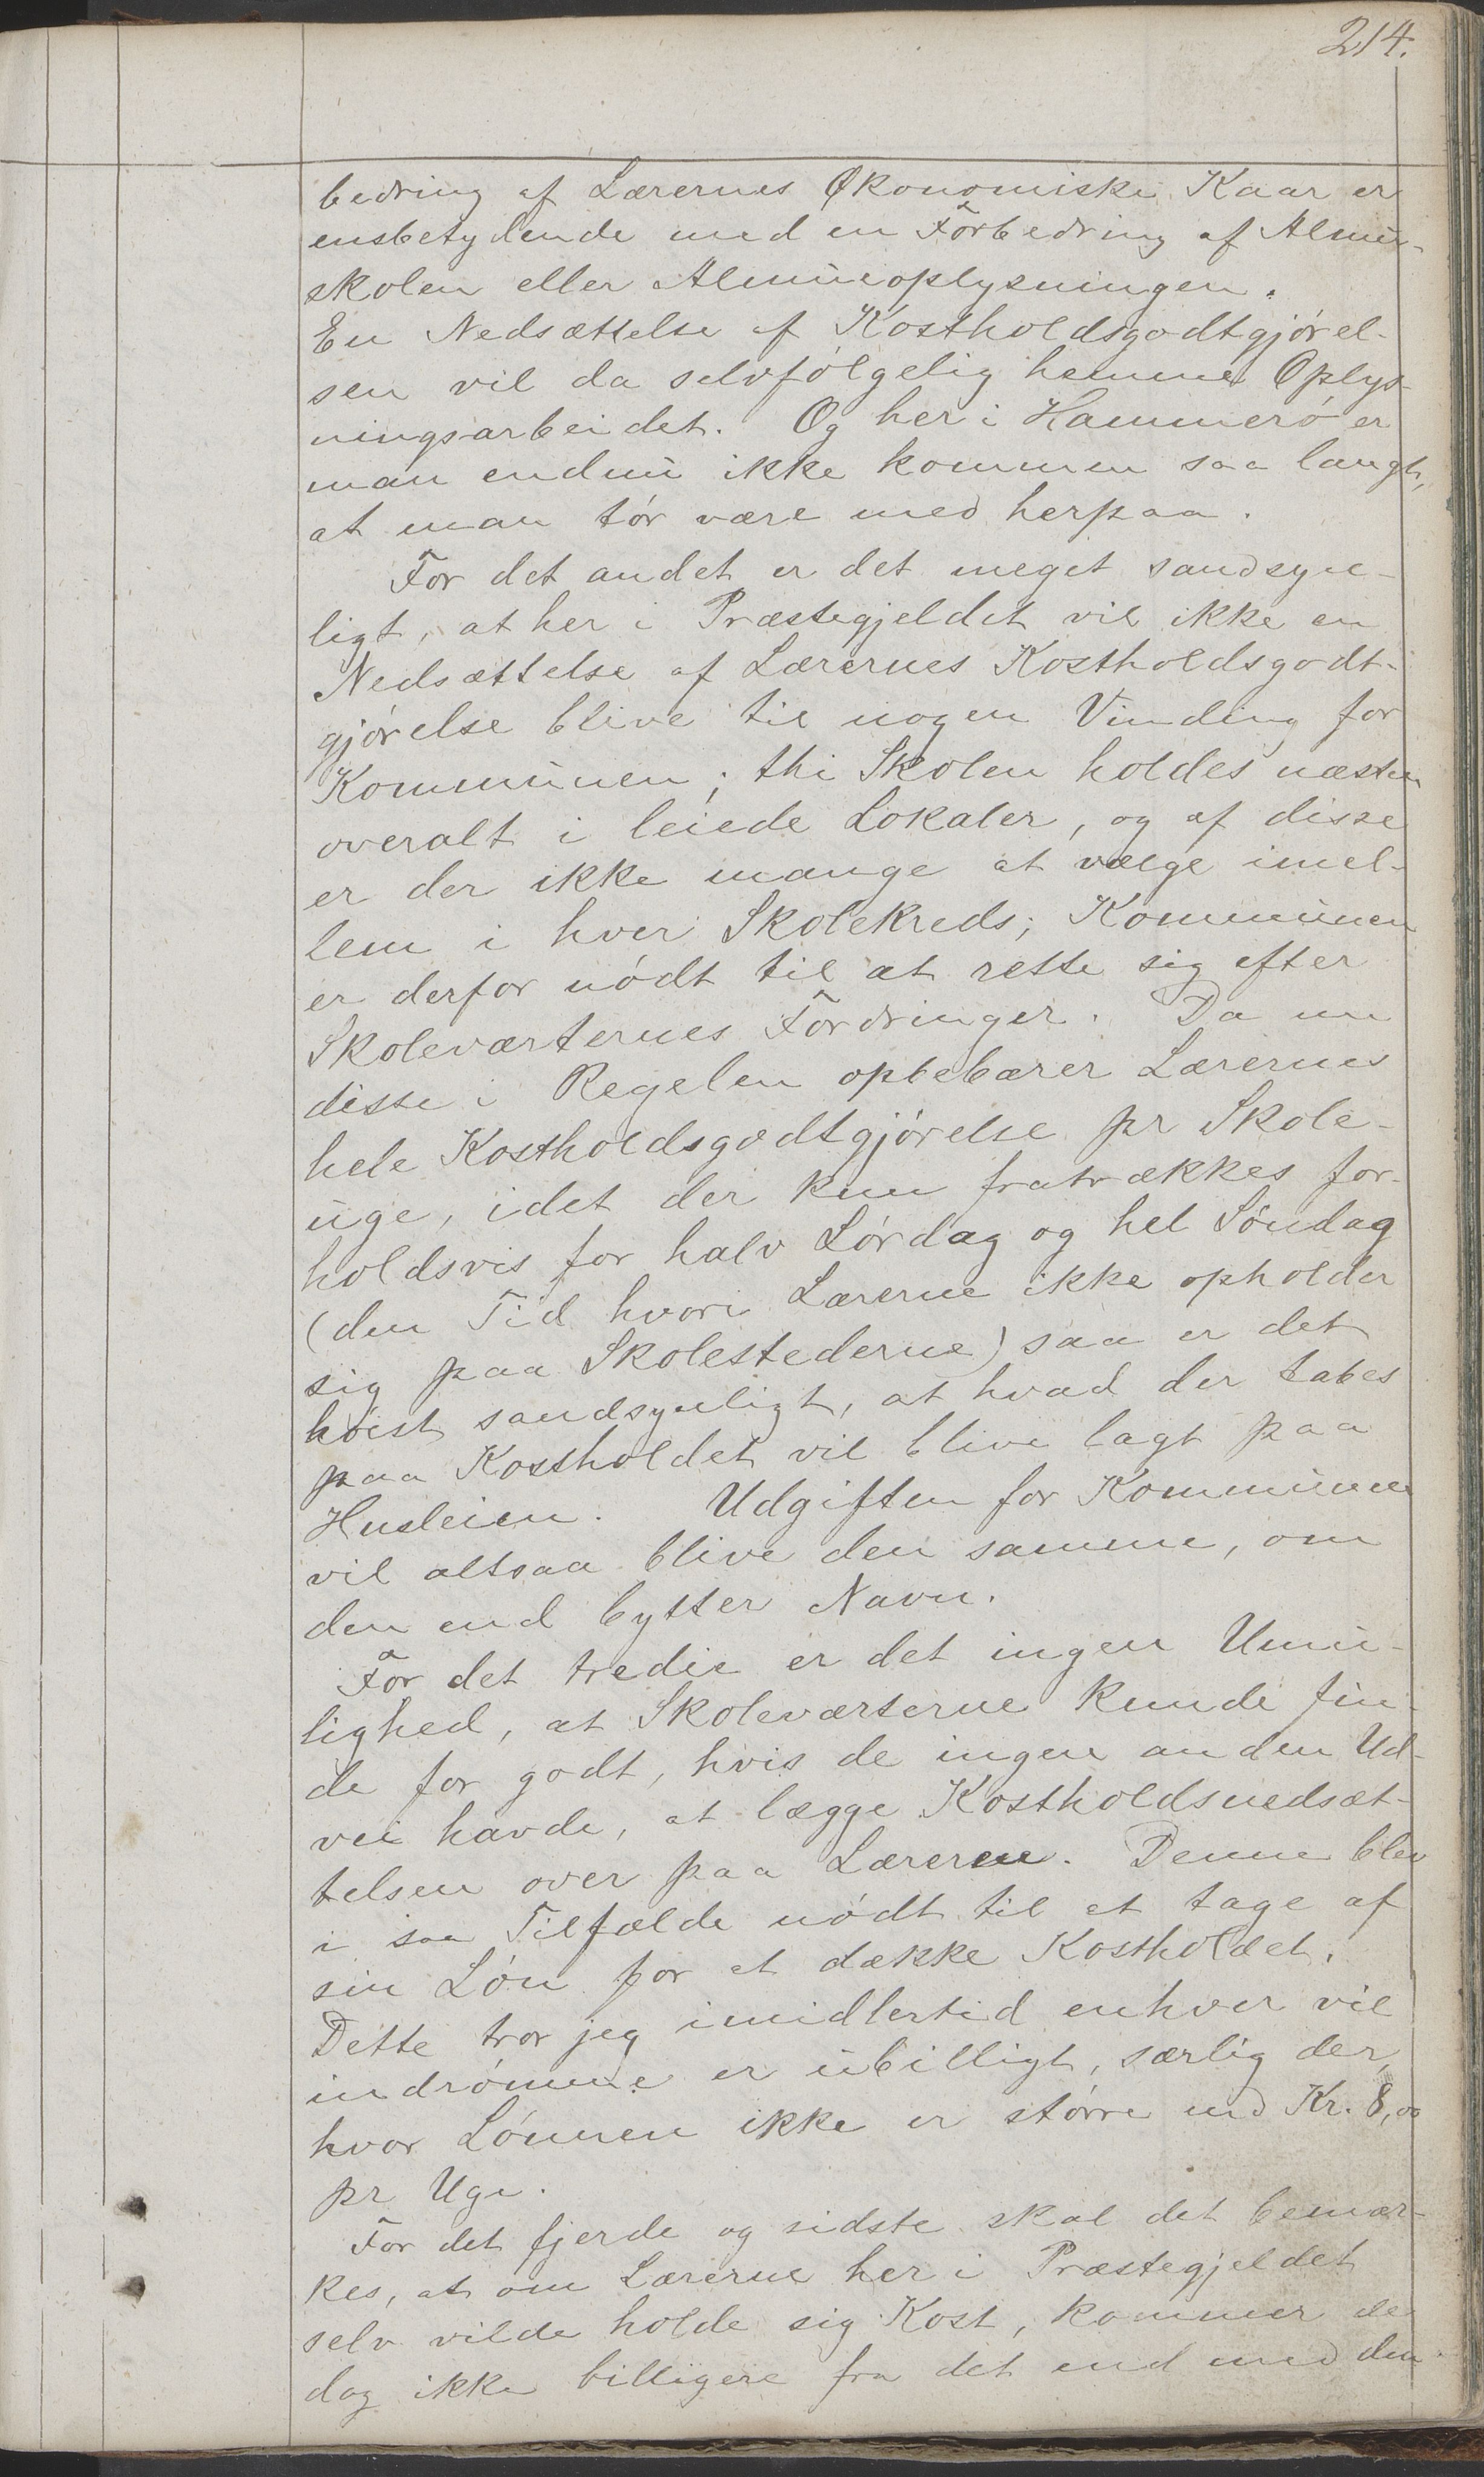 214.
bedring af Lærernes Økonomiske Kaar er
ensbetydende med en Forbedring af Almue-
skolen eller Almueoplysningen.
En Nedsættelse af Kostholdsgodtgjørel-
sen vil da selvfølgelig hemme Oplys-
ningsarbeidet. Og her i Hammerø er
man endnu ikke kommen saa langt,
at man tør være med herpaa.
For det andet er det meget sandsyn-
ligt, at her i Præstegjeldet vil ikke en
Nedsættelse af Lærernes Kostholdsgodt-
gjørelse blive til nogen Vinding for
Kommunen; thi Skolen holdes næsten
overalt i leiede Lokaler, og af disse
er der ikke mange at vælge imel-
lem i hver Skolekreds; Kommunen
er derfor nødt til at rette sig efter
Skoleværternes Fordringer. Da nu
disse i Regelen oppebærer Lærernes
hele Kostholdsgodtgjørelse pr Skole-
uge, idet der kun fratrækkes for-
holdsvis for halv Lørdag og hel Søndag
(den Tid hvori Lærerne ikke opholder
sig paa Skolestederne) saa er det
høist sandsynligt, at hvad der tabes
paa Kostholdet vil blive lagt paa
Husleien. Udgiften for Kommunen
vil altsaa blive den samme, om
den end bytter Navn.
For det tredie er det ingen Umu-
lighed, at Skoleværterne kunde fin-
de for godt, hvis de ingen anden Ud-
vei havde, at lægge Kostholdsnedsæt-
telsen over paa Læreren. Denne blev
i saa Tilfælde nødt til at tage af
sin Løn for at dække Kostholdet.
Dette tror jeg imidlertid enhver vil
indrømme er ubilligt, særlig der,
hvor Lønnen ikke er større end Kr. 8,00
pr Uge.
For det fjerde og sidste skal det bemær-
kes, at om Lærerne her i Præstegjeldet
selv vilde holde sig Kost, kommer de
dog ikke billigere fra det end med den